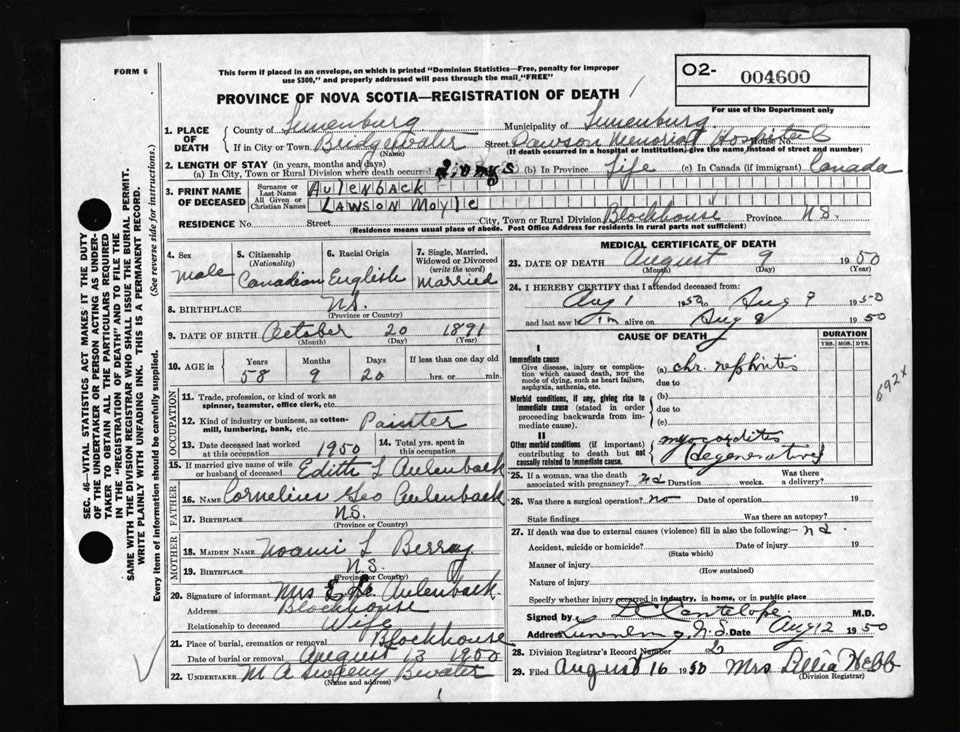 FORM 6
This form if placed in an envelope, on which is printed "Dominion Statistics—Free, penalty for improper
use $300," and properly addressed will pass through the mail "FREE"
O2- 004600
For use of the Department only
PROVINCE OF NOVA SCOTIA—REGISTRATION OF DEATH
1. PLACE OF DEATH
County of Lunenburg Municipality of Lunenburg
If in City or Town Bridgewater Street Dawson Memorial Hospital House No.
(Name) (If death occurred in a hospital or institution, give the name instead of street and number)
2. LENGTH OF STAY (in years, months and days)
(a) In City, Town or Rural Division where death occurred (b) In Province Life (c) In Canada (if immigrant) Canada
3. PRINT NAME OF DECEASED
Surname or Last Name AULENBACK
All Given or Christian Names LAWSON MOYLE
RESIDENCE No. Street City, Town or Rural Division Blockhouse Province N.S.
(Residence means usual place of abode. Post Office Address for residents in rural parts not sufficient)
4. Sex Male
5. Citizenship (Nationality) Canadian
6. Racial Origin English
7. Single, Married, Widowed or Divorced (write the word) Married
8. BIRTHPLACE N.S.
(Province or Country)
9. DATE OF BIRTH October 20 1891
(Month) (Day) (Year)
10. AGE in Years Months Days If less than one day old
58 9 20 hrs. or min.
OCCUPATION
11. Trade, profession, or kind of work as
spinner, teamster, office clerk, etc.
12. Kind of industry or business, as cotton-
mill, lumbering, bank, etc. Painter
13. Date deceased last worked
at this occupation 1950
14. Total yrs. spent in
this occupation
15. If married give name of wife
or husband of deceased Edith L Aulenback
FATHER
16. Name Cornelius Geo Aulenback
17. Birthplace N.S.
(Province or Country)
MOTHER
18. MAIDEN NAME Noami L Berray
19. Birthplace N.S.
(Province or Country)
20. Signature of informant Mrs Aulenback.
Address Blockhouse
Relationship to deceased Wife
21. Place of burial, cremation or removal Blockhouse
Date of burial or removal August 13 1950
22. UNDERTAKER M A Sweeny Bwater
(Name and address)
MEDICAL CERTIFICATE OF DEATH
23. DATE OF DEATH August 9 1950
(Month) (Day) (Year)
24. I HEREBY CERTIFY that I attended deceased from:
Aug 1 1950 to Aug 9 1950
and last saw him alive on Aug 9 1950
CAUSE OF DEATH
DURATION
YRS. MOS. DYS.
I
Immediate cause
Give disease, injury or complica-
tion which caused death, not the
mode of dying, such as heart failure,
asphyxia, asthenia, etc.
(a) chr. nephritis
due to
Morbid conditions, if any, giving rise to
immediate cause (stated in order
proceeding backwards from im-
mediate cause)
(b)
due to
(c)
II
Other morbid conditions (if important)
contributing to death but not
causally related to immediate cause.
myocarditis
(degenerative)
592X
25. If a woman, was the death
associated with pregnancy? no Duration weeks. Was there
a delivery?
26. Was there a surgical operation? no Date of operation 19
State findings Was there an autopsy?
27. If death was due to external causes (violence) fill in also the following:— no
Accident, suicide or homicide? Date of injury 19
(State which)
Manner of injury
(How sustained)
Nature of injury
Specify whether injury occurred in industry, in home, or in public place
Signed by Cantelope. M.D.
Address Lunenburg, N.S. Date Aug 12 1950
28. Division Registrar's Record Number 2
29. Filed August 16 1950 Mrs Lillia Webb
(Division Registrar)
SEC. 46—VITAL STATISTICS ACT MAKES IT THE DUTY
OF THE UNDERTAKER OR PERSON ACTING AS UNDER-
TAKER TO OBTAIN ALL THE PARTICULARS REQUIRED
IN THE "REGISTRATION OF DEATH" AND TO FILE THE
SAME WITH THE DIVISION REGISTRAR WHO SHALL ISSUE THE BURIAL PERMIT.
WRITE PLAINLY WITH UNFADING INK. THIS IS A PERMANENT RECORD.
Every item of information should be carefully supplied. (See reverse side for instructions.)